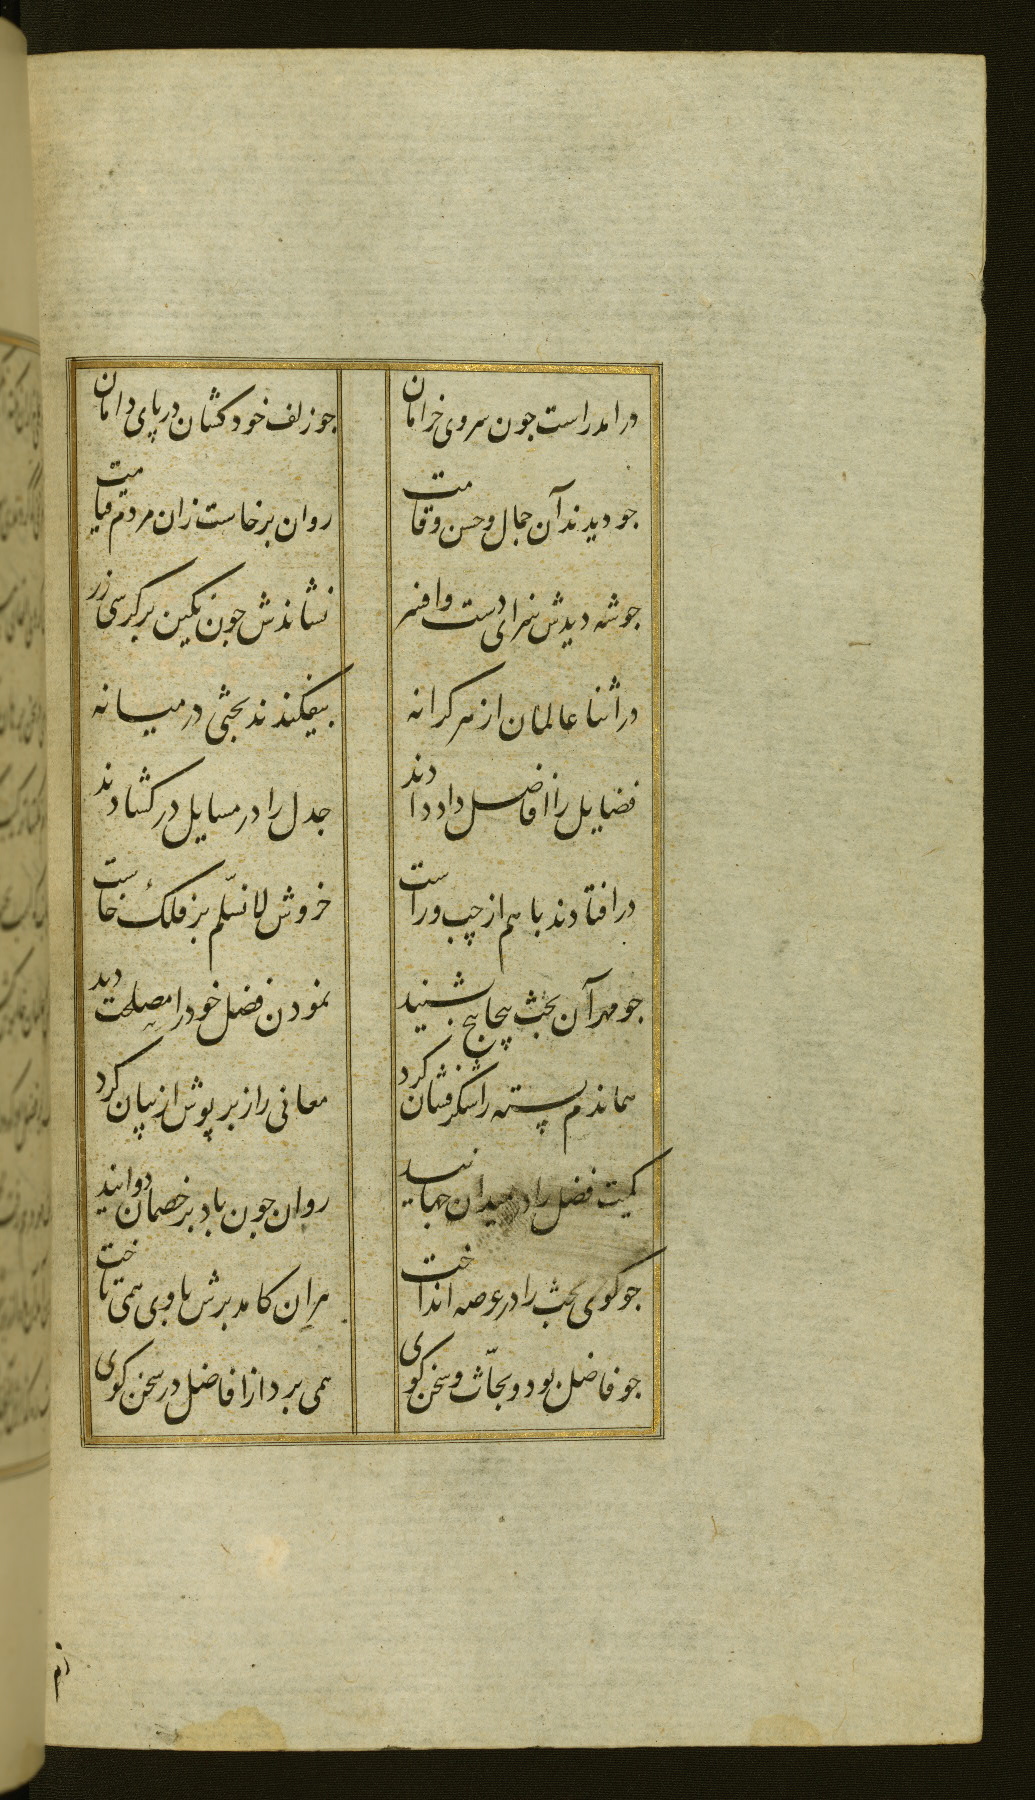 درامد راست جون سروی خرامان
جو زلف خود کشان در پای دامان
جو دیدند آن جمال و حسن و قامت
روان برخاست زان مردم قیامت
جو شه دیدش سزای دست و افسر
نشاندش جون نکین بر کرسی زر
در اثنا عالمان از هر کرانه
بیفکندند بحثی در میانه
فضایل را افاضل داد دادند
جدل را در مسایل در کشادند
در افتادند با هم از چپ و راست
خروش لا نسلّم بر فلک خاست
جو مهر آن بحث پیچاپیچ بشنید
نمودن فضل خود را مصلحت دید
هماندم پسته را شکرفشان کرد
معانی را ز بر پوش از بیان کرد
کمیت فضل را در میدان جهانید
روان جون باد بر خصمان دوانید
جو کوی بحث را در عرصه انداخت
هران کامد برش با وی همی تاخت
جو فاضل بود و بحّاث و سخن کوی
همی برد از افاضل در سخن کوی